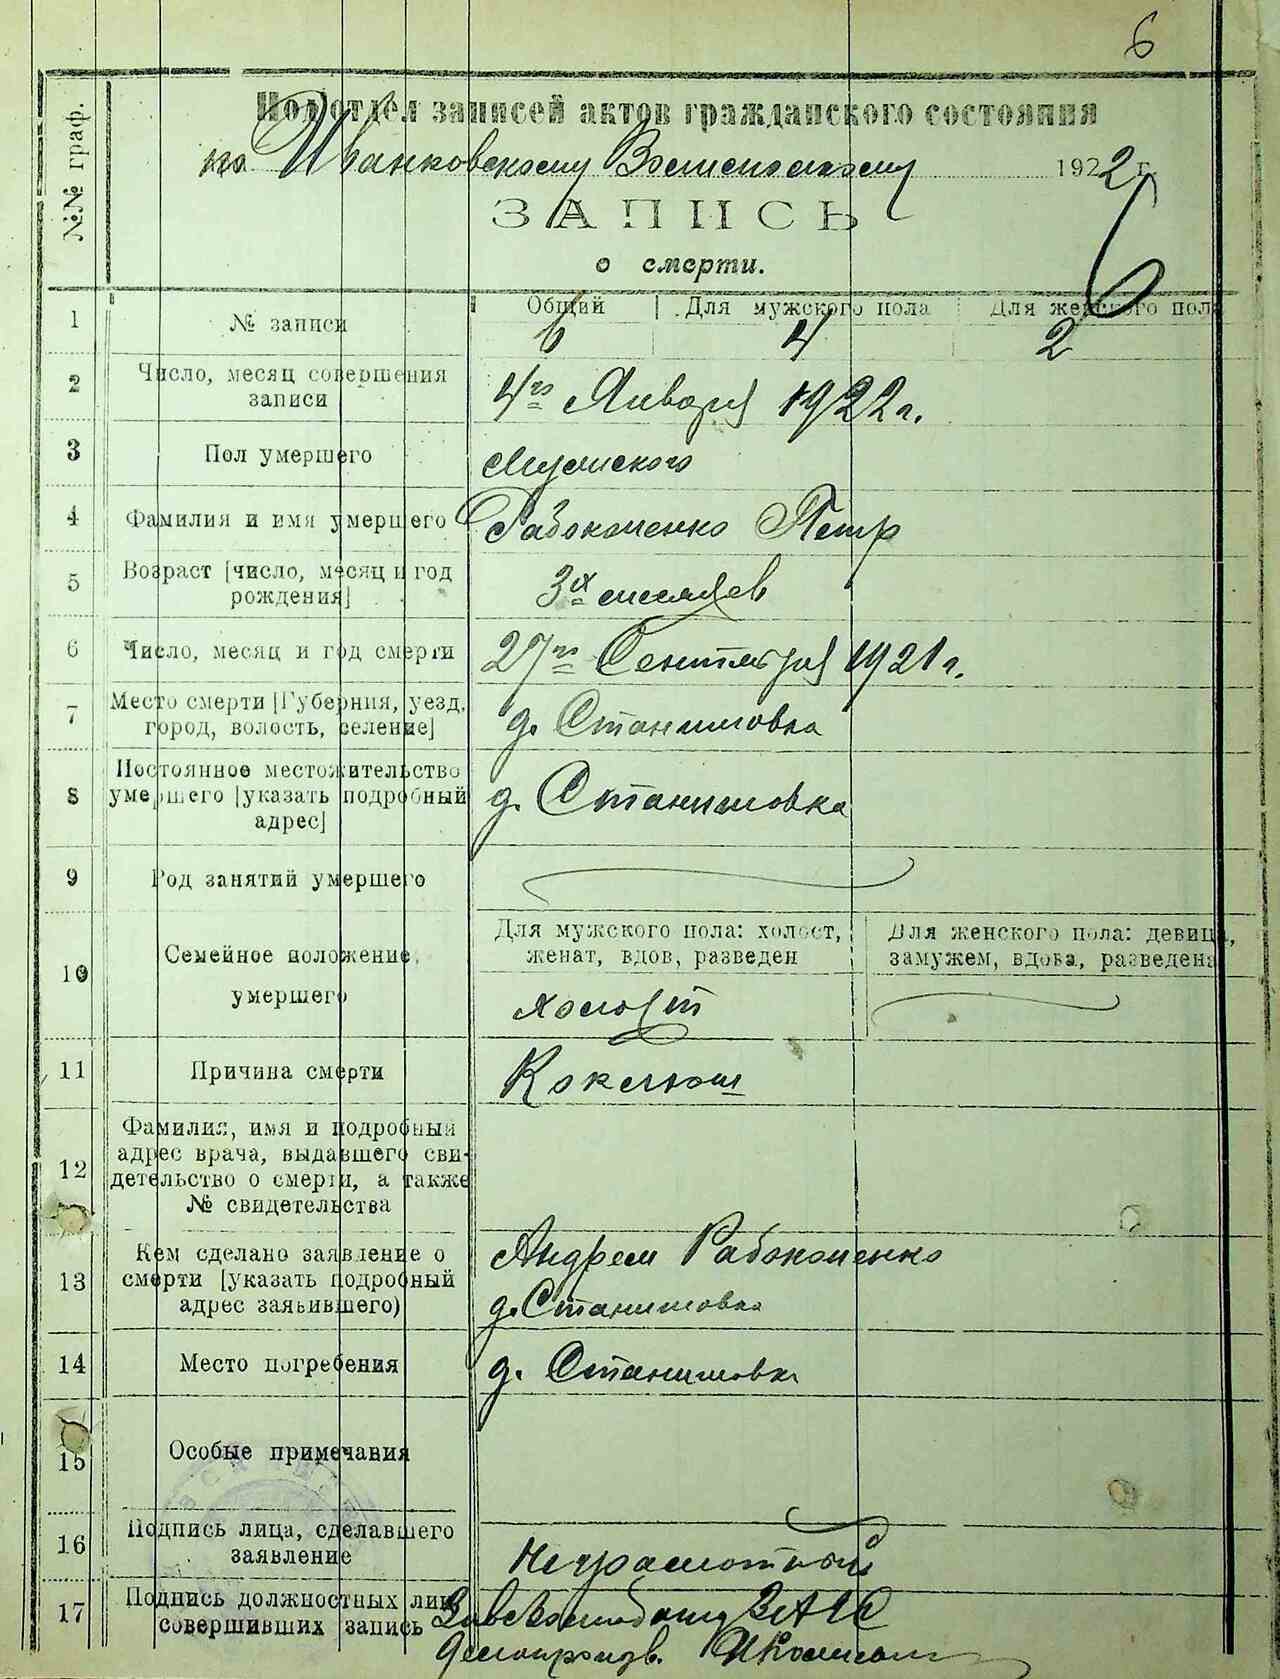 6
№№ граф.
Подотдел записей актов гражданского состояния
по Иванковскому Волисполкому 1922 г.
6
ЗАПИСЬ
о смерти.
1 № записи Общий Для мужского пола Для женского пола
6 4 2
2 Число, месяц совершения
записи
4го Января 1922 г.
3 Пол умершего Мужского
4 Фамилия и имя умершего Рабокоменко Петр
5 Возраст [число, месяц и год
рождения]
3х месяцев
6 Число, месяц и год смерти 27го Сентября 1921 г.
7 Место смерти [Губерния, уезд,
город, волость, селение]
д. Станишовка
8 Постоянное местожительство
умершего [указать подробный
адрес]
д. Станишовка
9 Род занятий умершего
10 Семейное положение
умершего
Для мужского пола: холост,
женат, вдов, разведен
Для женского пола: девица,
замужем, вдова, разведена
холост
11 Причина смерти Коклюш
12 Фамилия, имя и подробный
адрес врача, выдавшего сви-
детельство о смерти, а также
№ свидетельства
13 Кем сделано заявление о
смерти [указать подробный
адрес заявившего)
Андреем Рабокоменко
д. Станишовка
14 Место погребения д. Станишовка
15 Особые примечания
16 Подпись лица, сделавшего
заявление
Неграмотный
17 Подпись должностных лиц
совершивших запись
ЗАГС
Делопроизв.